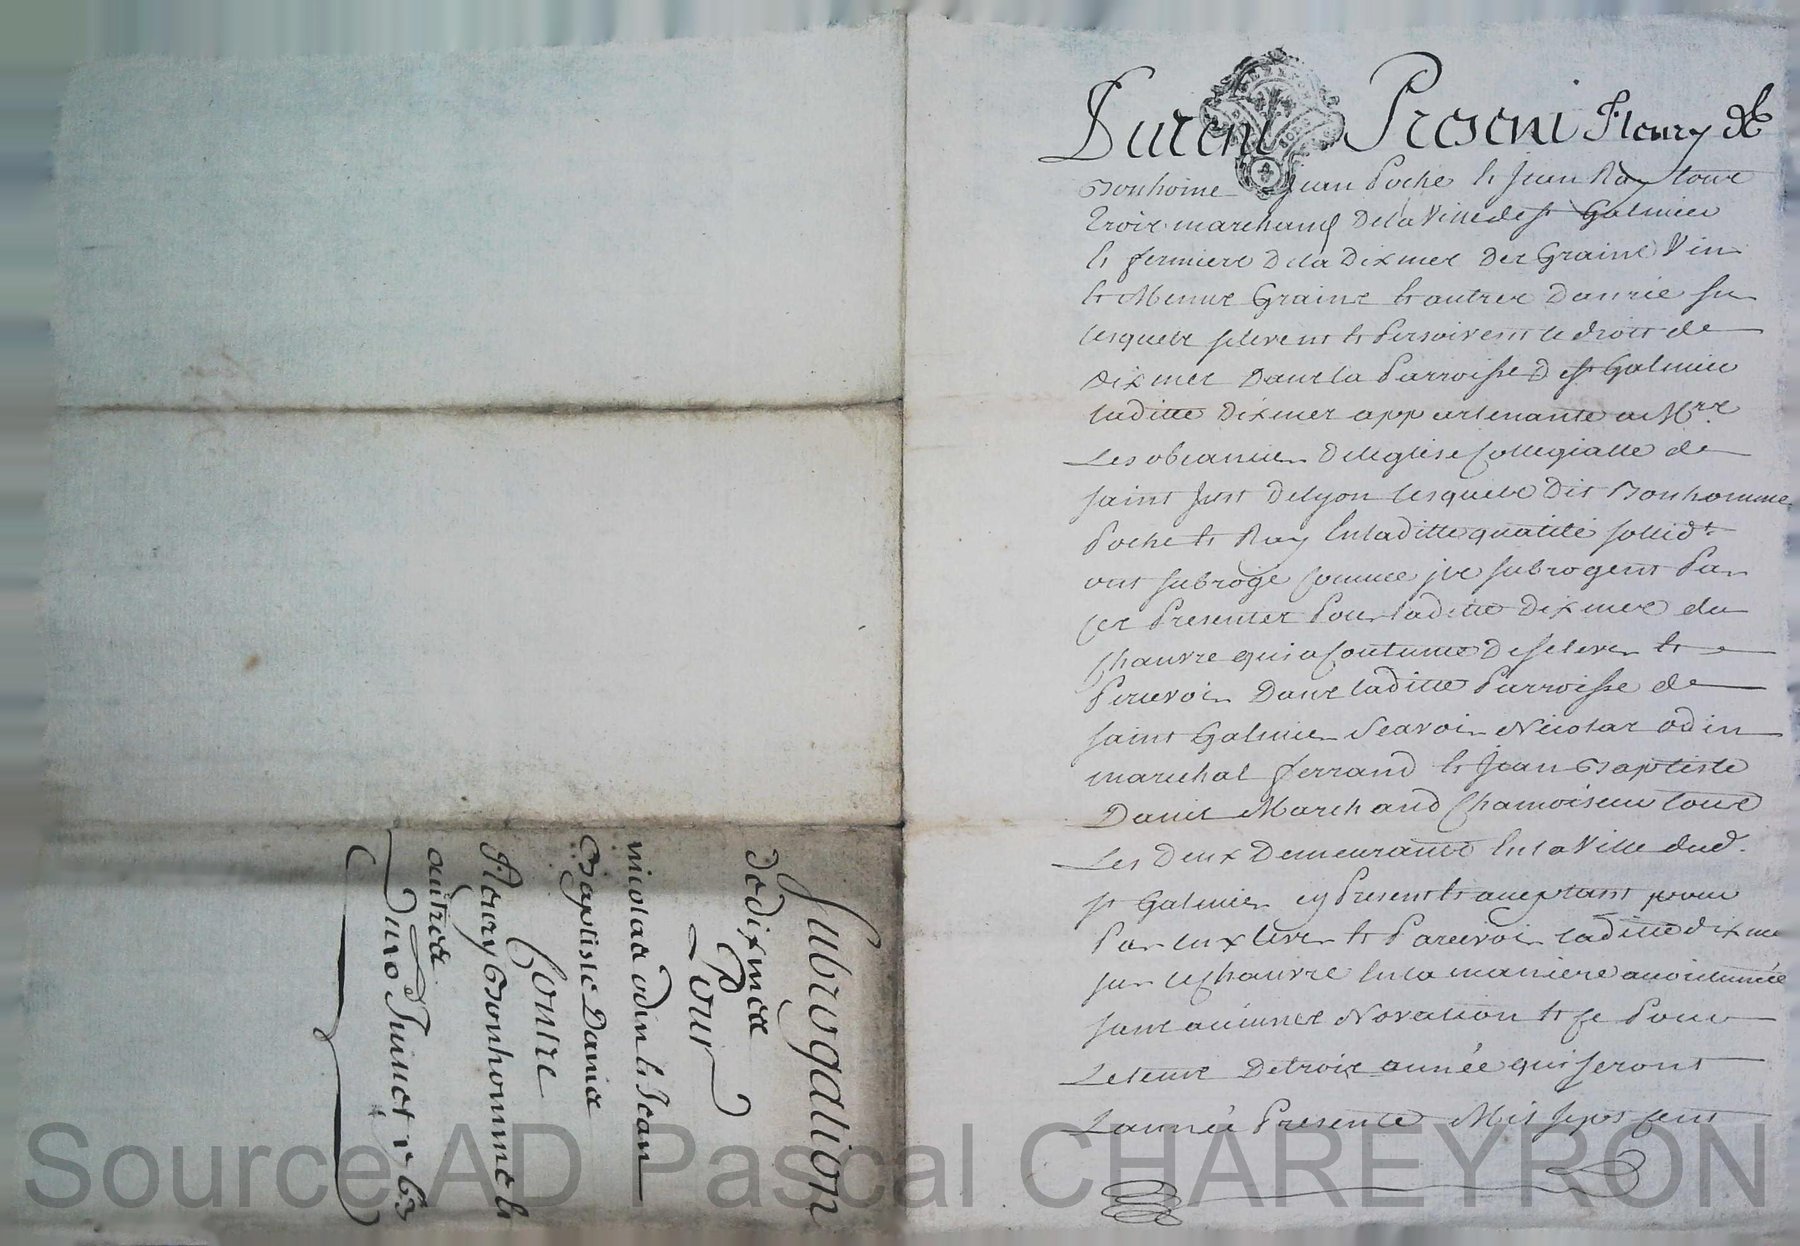 Subrogation
de dixmes
Pour
nicolas odin et Jean
Baptiste Danis
Contre
Fleury Bonhomme et
autres
Du 20 Juillet 1763
Furent Presents Fleury
Bonhome Jean Poche et Jean Ray tous
trois marchand de la Ville de st Galmier
et fermiers de la dixmes des Grains Vin
et Menus Grains et autres danrié sur
lesquels se levent et Persoivent le droit de
dixmes dans la Parroisse de st Galmier
laditte dixmes appartenante a Mrs
Les obeancier de leglise Collegialle de
saint Just de lyon lesquels dit Bonhomme
Poche et Ray en laditte qualité sollidt
ont subrogé comme ils subrogent Par
ces Presentes Pour laditte dixmes du
chanvre qui a Coutume de se lever et
Percevoir dans laditte Parroisse de
saint Galmier Scavoir Nicolas odin
marechal ferrand et Jean Baptiste
Danis Marchand Chamoiseur tous
Les deux demeurants en la Ville dud.
st Galmier cy Present et acceptant pour
Par eux lever et Parcevoir laditte dixme
sur le Chanvre en la maniere accoutumée
sans aucunes Novation et ce Pour
Le tems de trois année qui seront
L'année Presente Mil sept cent
Source AD Pascal CHAREYRON